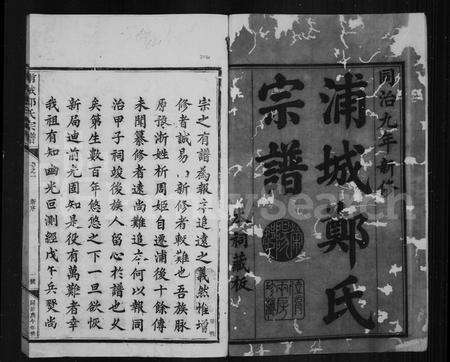 同治九年新修
浦城鄭氏
宗譜
本祠藏板
宗之有譜為報本追遠之義然惟增
修者誠易以新修者較難也吾族脉
原榖浙姓析周姬自遷浦後十餘傳
未聞纂修者遠尚難追本何以報同
治甲子祠竣後族人留心於譜也久
矣第生數百年悠悠之下一旦欲恢
新局迪前光固知是役有萬難者幸
我祖有知幽光叵測經戊午兵燹尚
浦城鄭氏宗譜
卷之一
新序
一